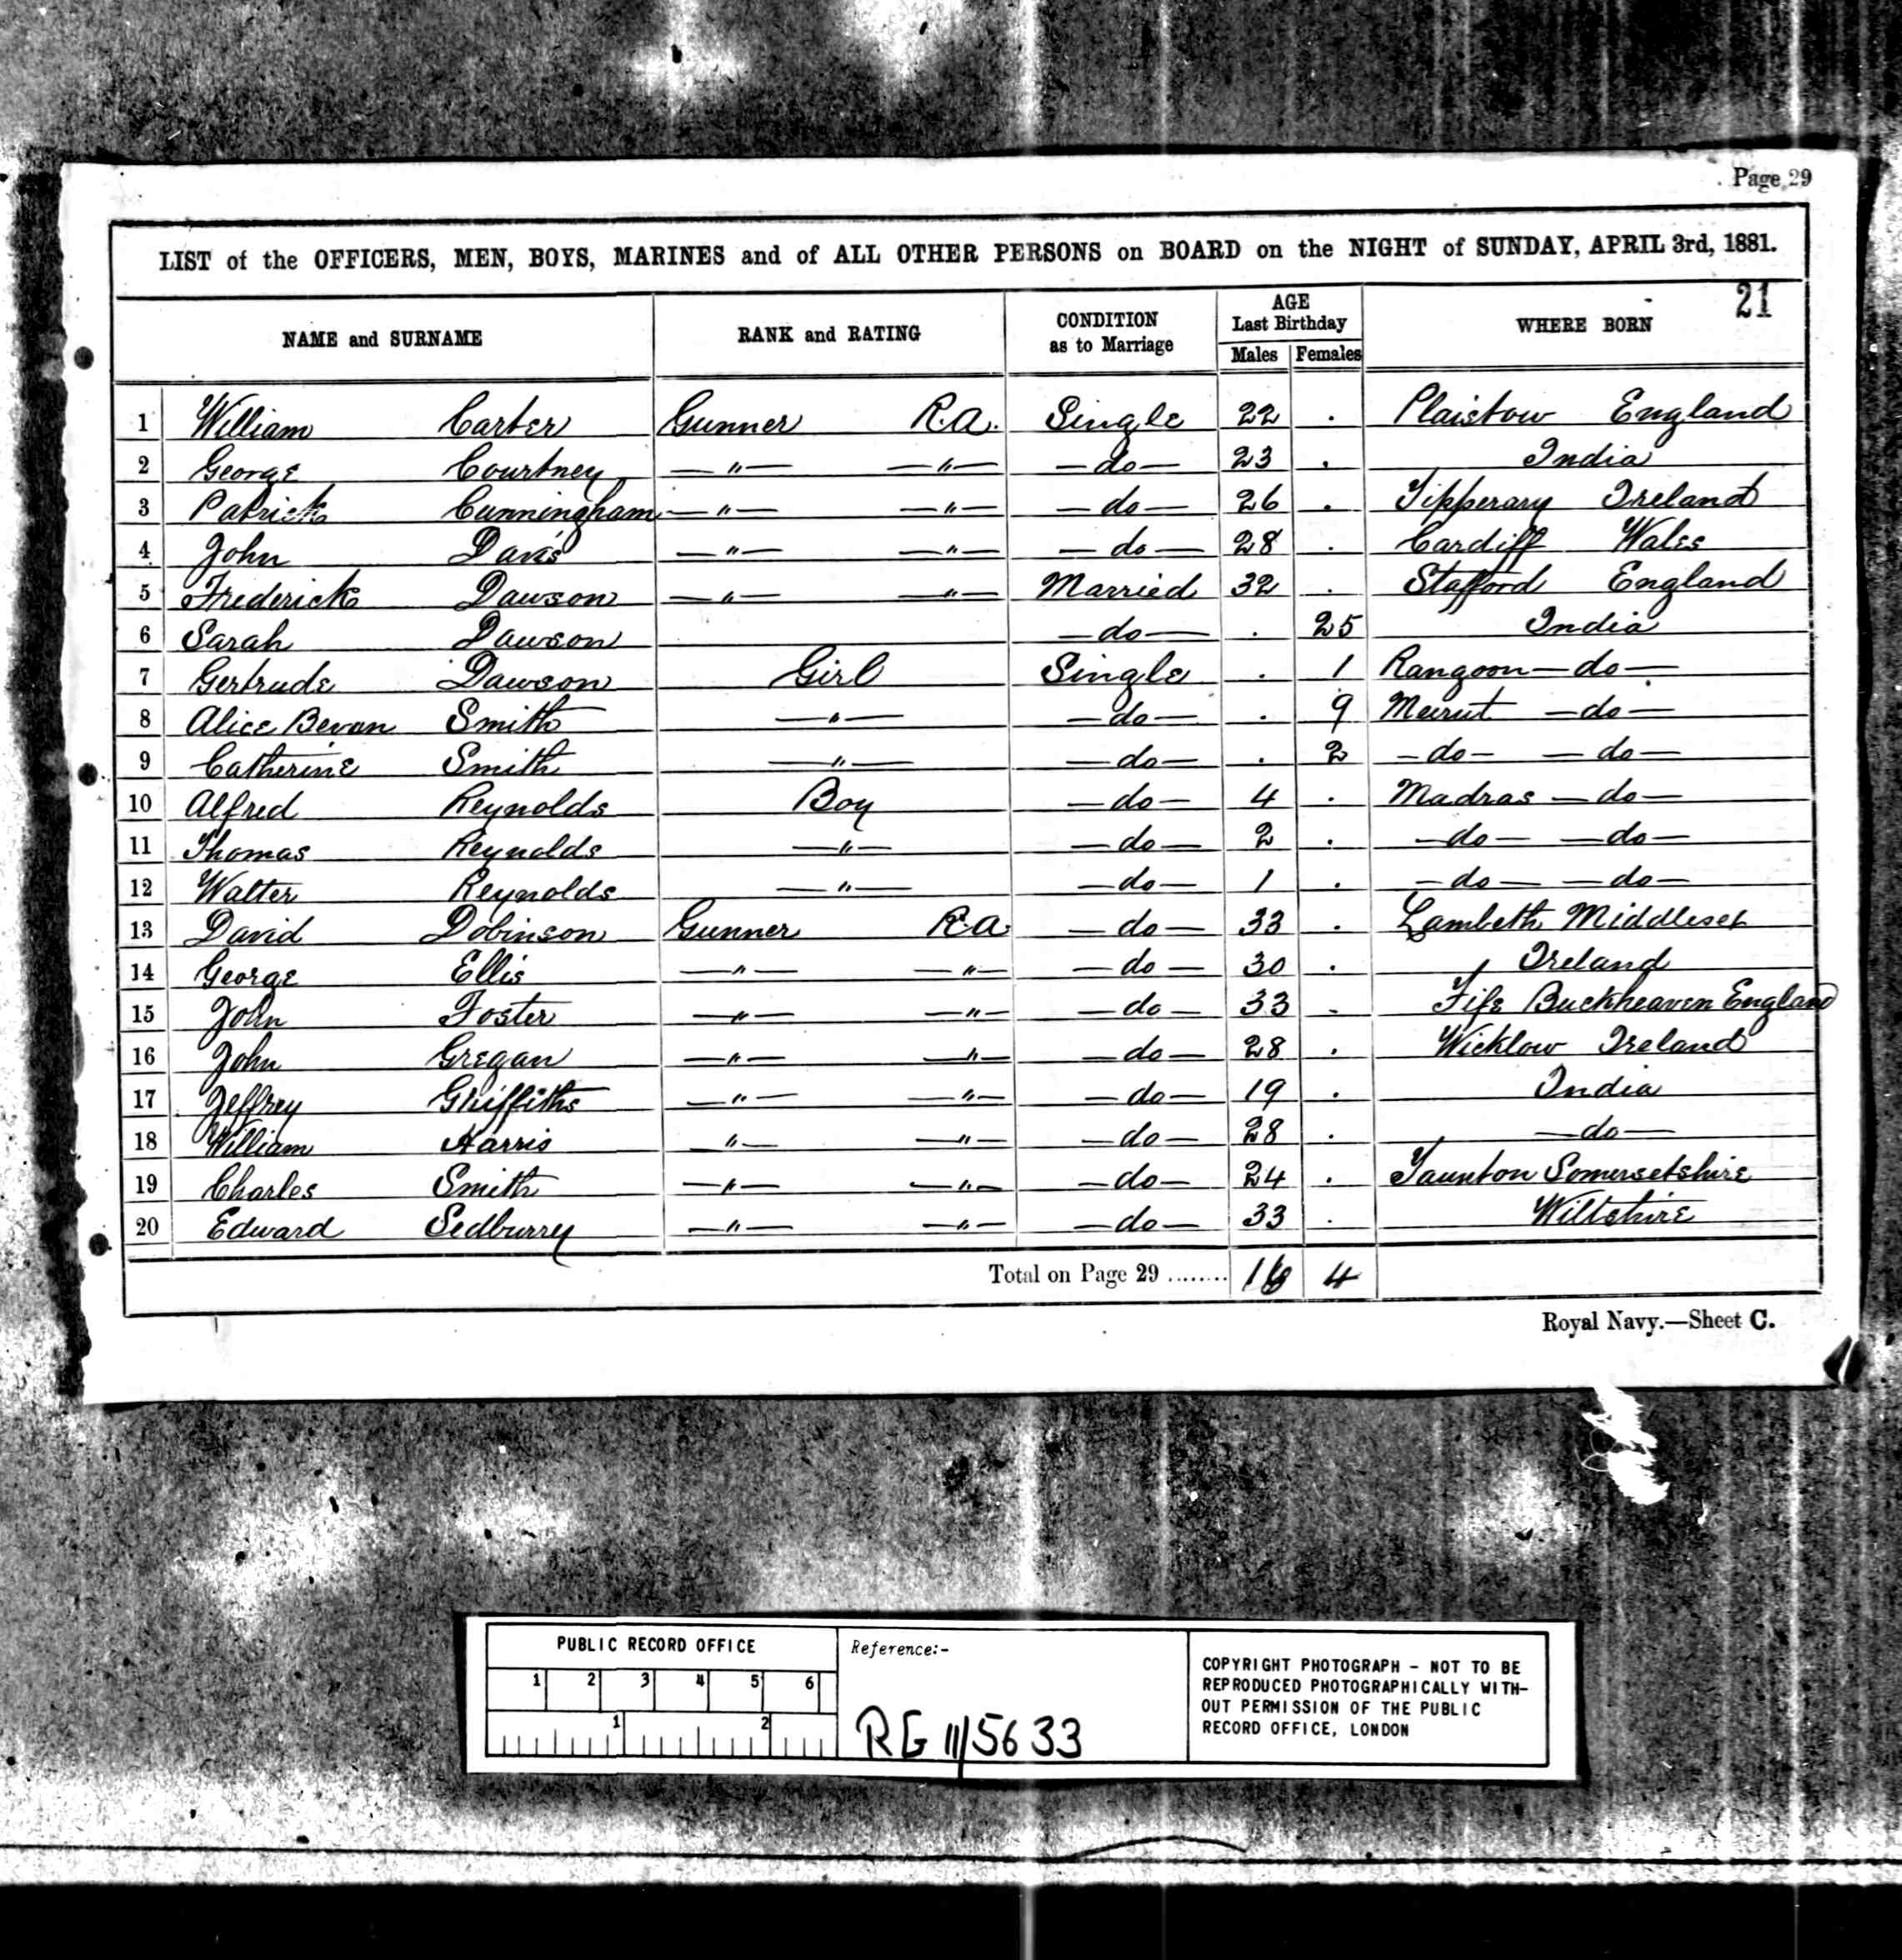 Page 29
LIST of the OFFICERS, MEN, BOYS, MARINES and of ALL OTHER PERSONS on BOARD on the NIGHT of SUNDAY, APRIL 3rd, 1881.
21
NAME and SURNAME RANK and RATING CONDITION as to Marriage AGE Last Birthday Males Females WHERE BORN
1 William Carter Gunner R.A. Single 22 . Plaistow England
2 George Courtney —"— —"— —do— 23 . India
3 Patrick Cunningham —"— —"— —do— 26 . Tipperary Ireland
4 John Davis —"— —"— —do— 28 . Cardiff Wales
5 Frederick Dawson —"— —"— Married 32 . Stafford England
6 Sarah Dawson —do— . 25 India
7 Gertrude Dawson Girl Single . 1 Rangoon —do—
8 Alice Bevan Smith —"— —do— . 9 Meirut —do—
9 Catherine Smith —"— —do— . 2 —do— —do—
10 Alfred Reynolds Boy —do— 4 . Madras —do—
11 Thomas Reynolds —"— —do— 2 . —do— —do—
12 Walter Reynolds —"— —do— 1 . —do— —do—
13 David Dobinson Gunner R.A. —do— 33 . Lambeth Middlesex
14 George Ellis —"— —"— —do— 30 . Ireland
15 John Foster —"— —"— —do— 33 . Fife Buckheaven England
16 John Gregan —"— —"— —do— 28 . Wicklow Ireland
17 Jeffrey Griffiths —"— —"— —do— 19 . India
18 William Harris "— —"— —do— 28 . —do—
19 Charles Smith —"— —"— —do— 24 . Taunton Somersetshire
20 Edward Sedburry —"— —"— —do— 33 . Wiltshire
Total on Page 29 ........ 16 4
Royal Navy.—Sheet C.
PUBLIC RECORD OFFICE
1 2 3 4 5 6
1 2
Reference:-
RG 11/5633
COPYRIGHT PHOTOGRAPH - NOT TO BE
REPRODUCED PHOTOGRAPHICALLY WITH-
OUT PERMISSION OF THE PUBLIC
RECORD OFFICE, LONDON